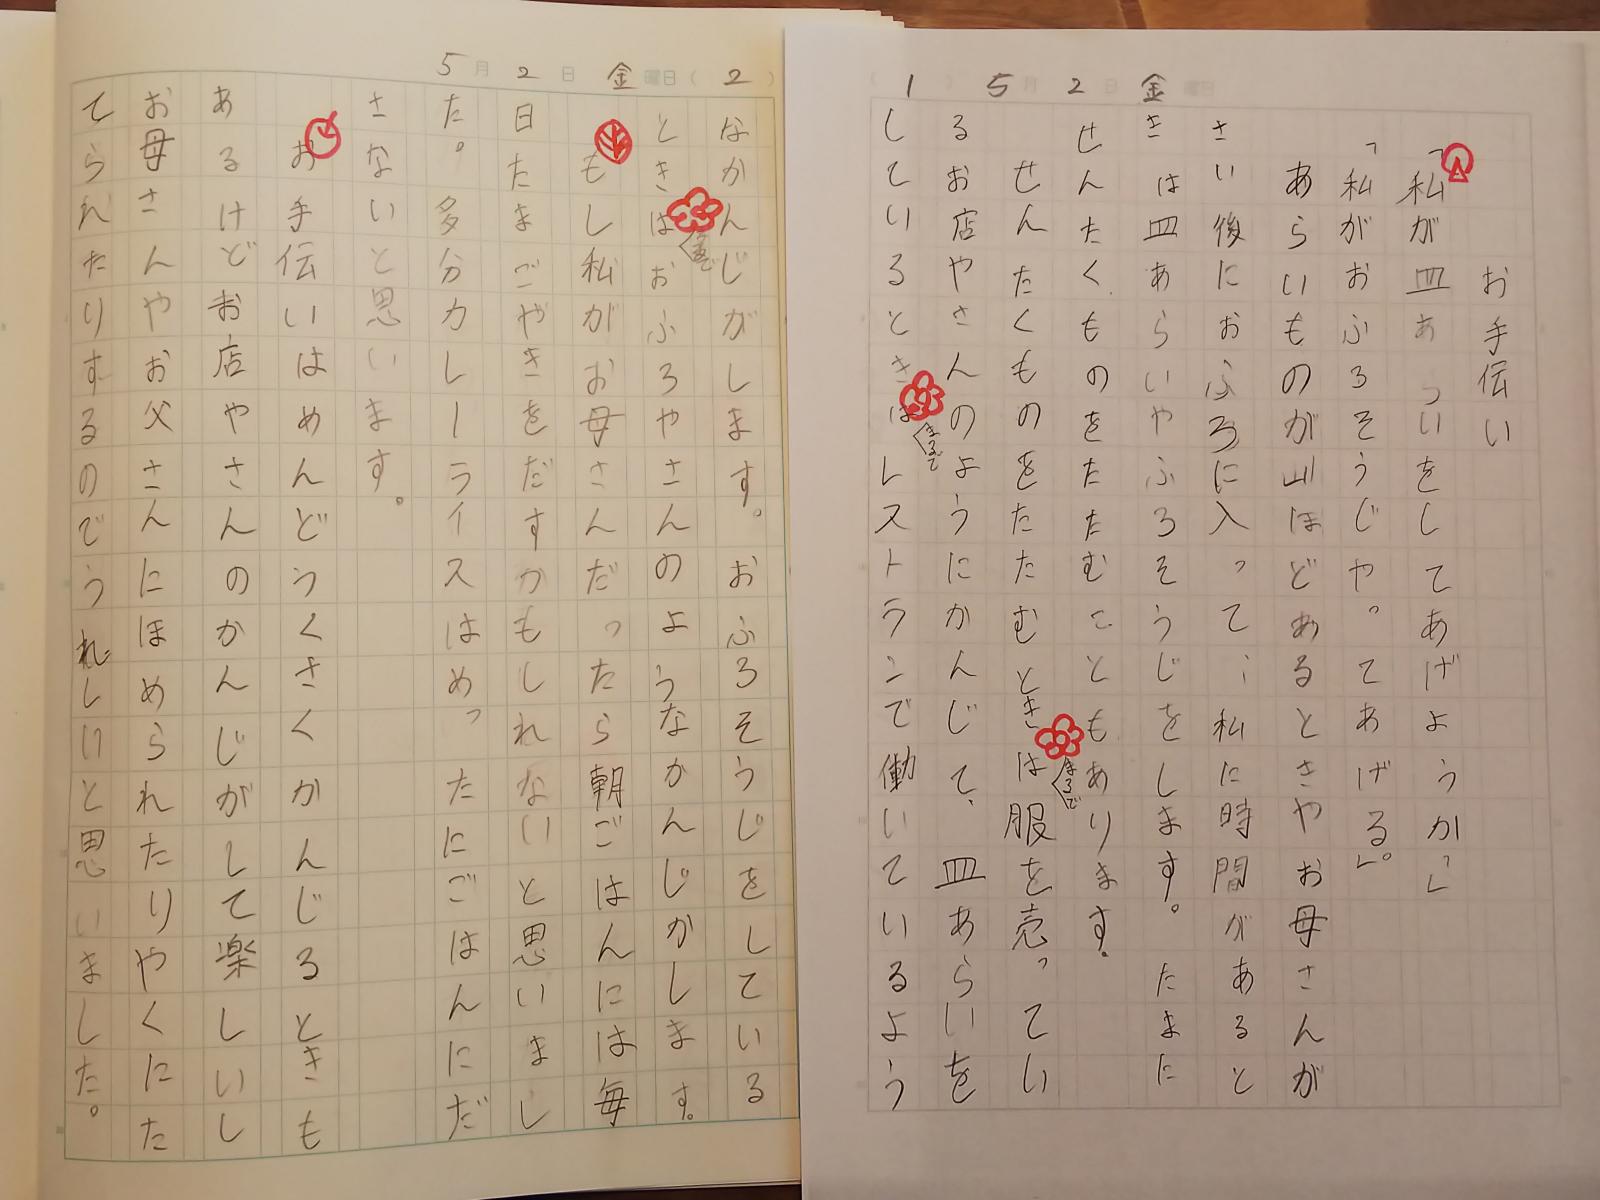 （1）5月2日金曜日
お手伝い
「私が皿あっいをしてあげようか」
「私がおふろそうじやってあげる」。
あらいものが山ほどあるときやお母さんが
さい後におふろに入って、私に時間があると
きは皿あらいやふろそうじをします。たまに
せんたくものをたたむこともあります。
せんたくものをたたむときは服を売ってい
まるで
るお店やさんのようにかんじて、皿あらいを
しているときはレストランで働いているよう
まるで
5月2日金曜日（2）
なかんじがします。おふろそうじをしている
ときはおふろやさんのようなかんじがします。
まるで
もし私がお母さんだったら朝ごはんには毎
日たまごやきをだすかもしれないと思いまし
た。多分カレーライスはめったにごはんにだ
さないと思います。
お手伝いはめんどうくさくかんじるときも
あるけどお店やさんのかんじがして楽しいし
お母さんやお父さんにほめられたりやくにた
てられたりするのでうれしいと思いました。